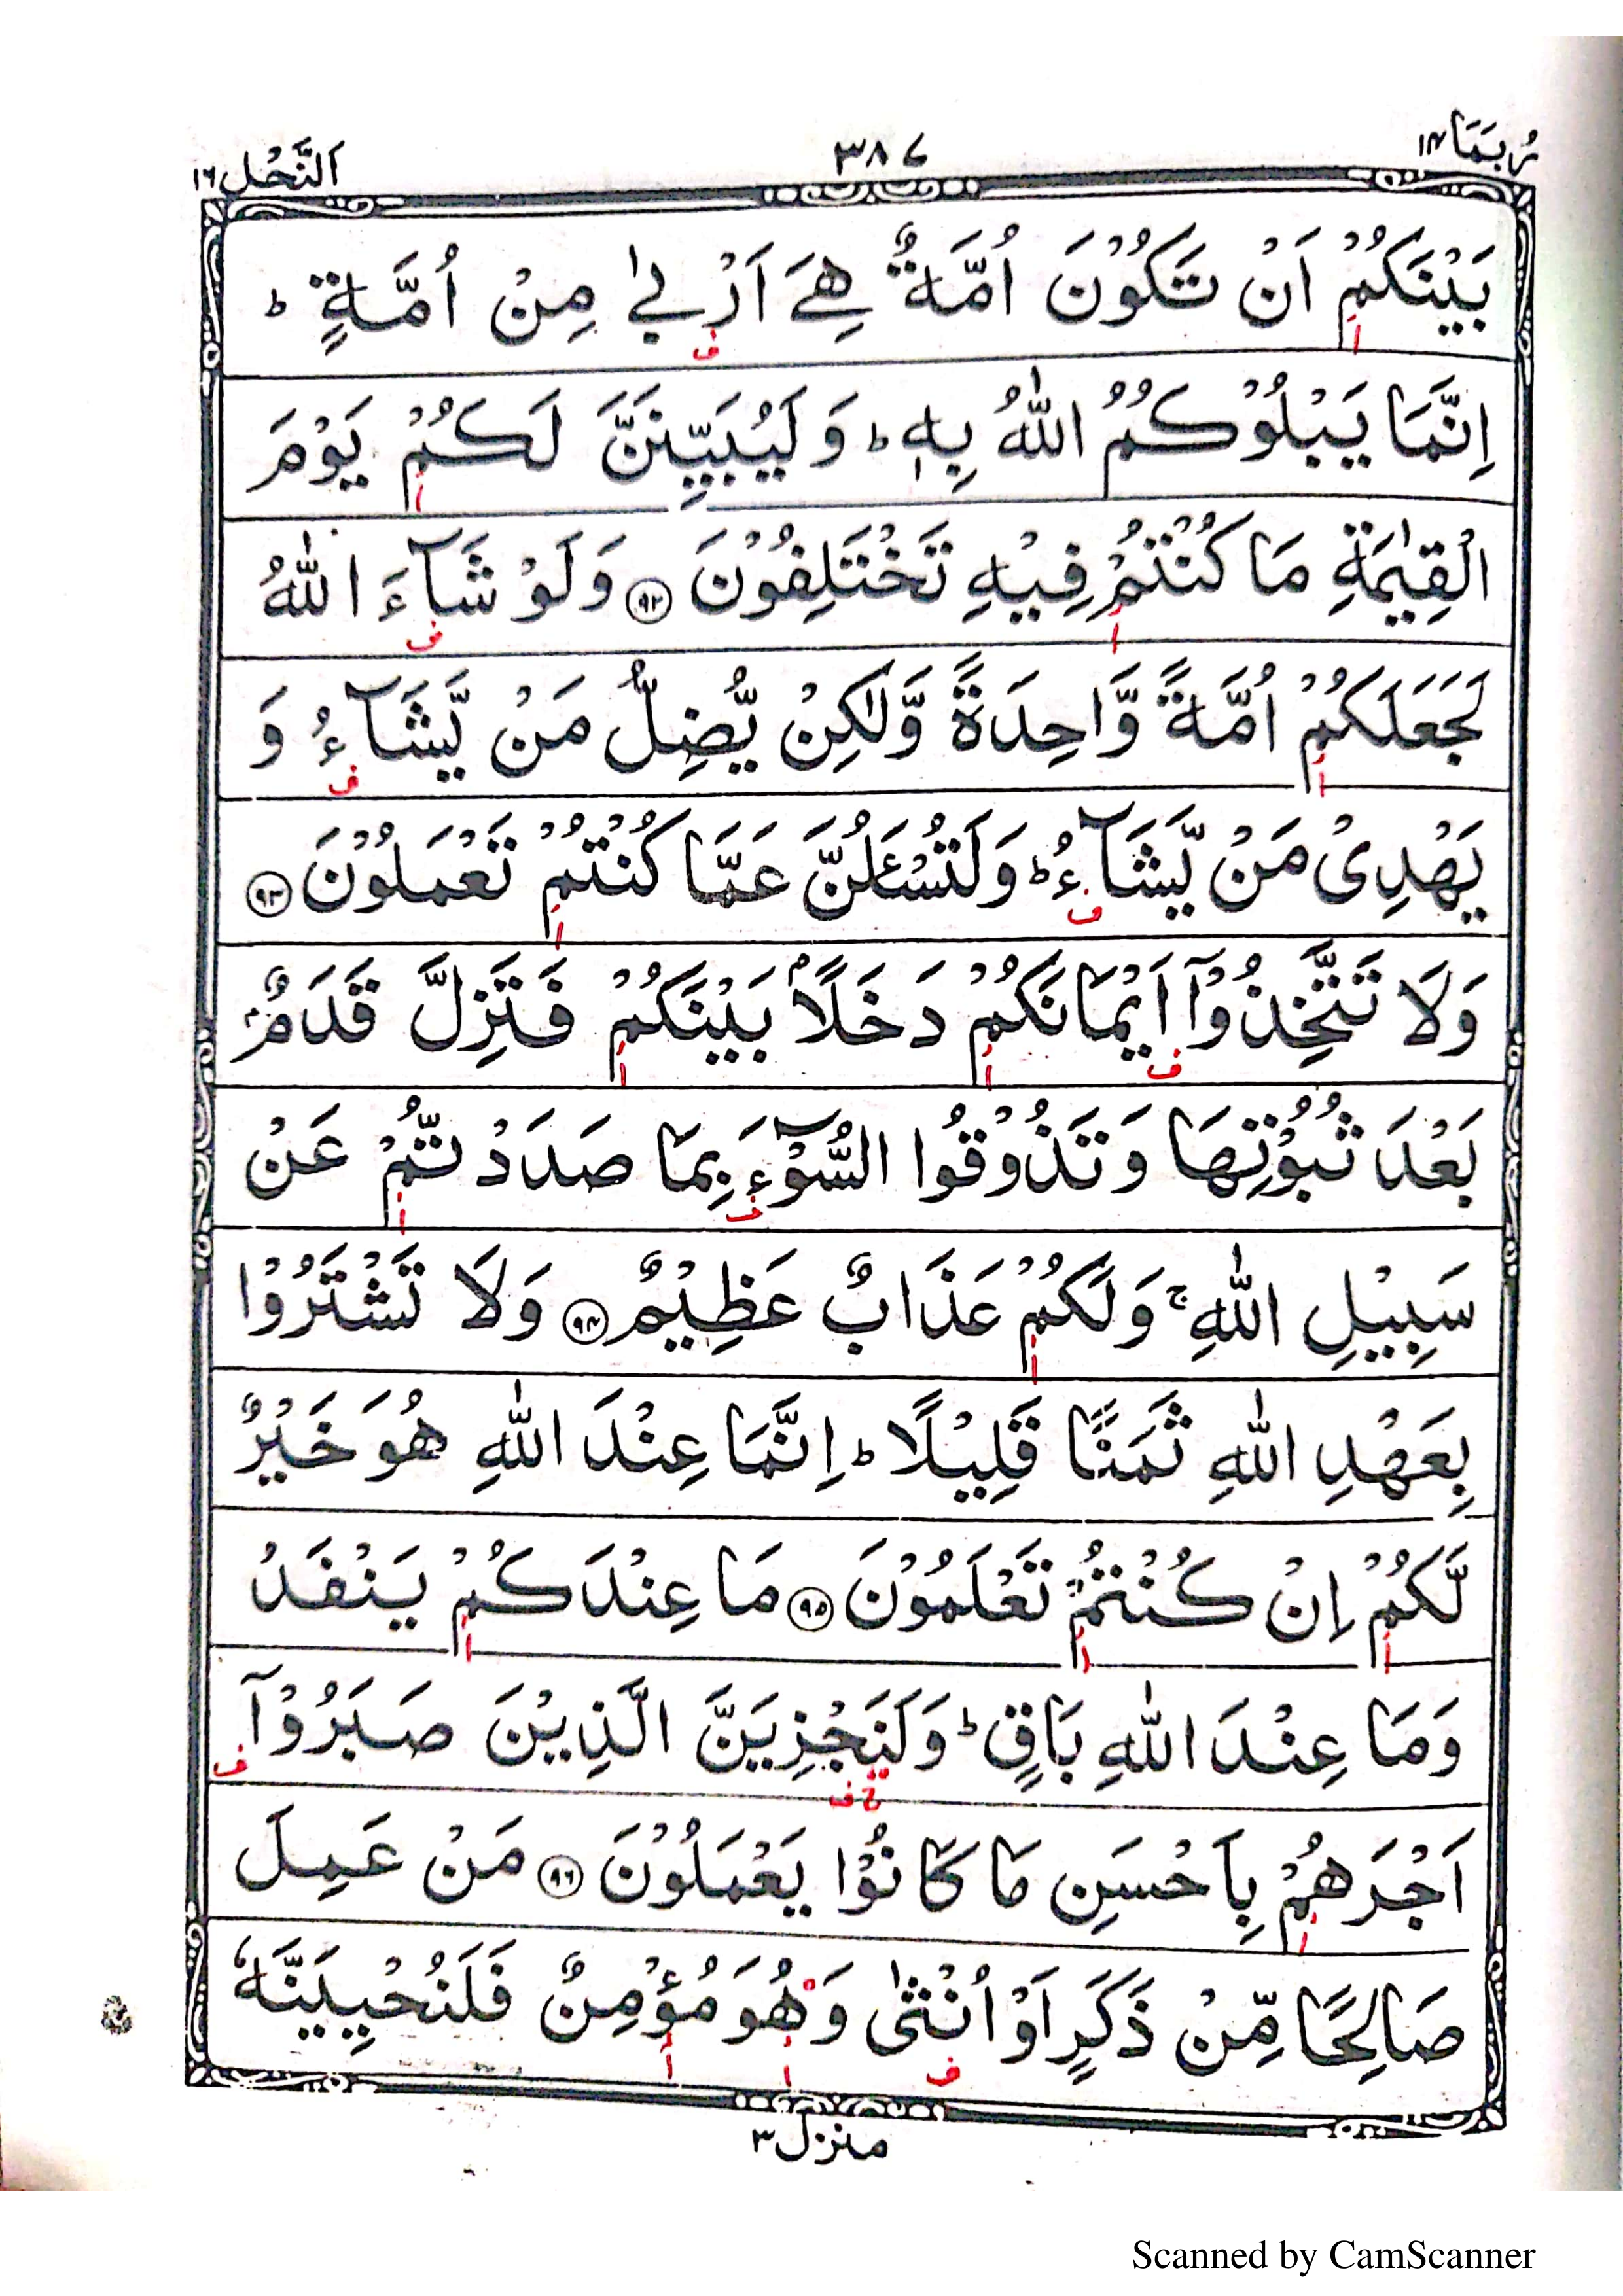 رُبَمَا ١٤
٣٨٧
اَلنَّحْل ١٦
بَيْنَكُمْ اَنْ تَكُوْنَ اُمَّةٌ هِىَ اَرْبٰى مِنْ اُمَّةٍ ؕ
اِنَّمَا يَبْلُوْكُمُ اللّٰهُ بِهٖ ؕ وَلَيُبَيِّنَنَّ لَكُمْ يَوْمَ
الْقِيٰمَةِ مَا كُنْتُمْ فِيْهِ تَخْتَلِفُوْنَ ﴿٩٢﴾ وَلَوْ شَآءَ اللّٰهُ
لَجَعَلَكُمْ اُمَّةً وَّاحِدَةً وَّلٰكِنْ يُّضِلُّ مَنْ يَّشَآءُ وَ
يَهْدِىْ مَنْ يَّشَآءُ ؕ وَلَتُسْـَٔلُنَّ عَمَّا كُنْتُمْ تَعْمَلُوْنَ ﴿٩٣﴾
وَلَا تَتَّخِذُوْٓا اَيْمَانَكُمْ دَخَلًاۢ بَيْنَكُمْ فَتَزِلَّ قَدَمٌۢ
بَعْدَ ثُبُوْتِهَا وَتَذُوْقُوا السُّوْٓءَ بِمَا صَدَدْتُّمْ عَنْ
سَبِيْلِ اللّٰهِ ۚ وَلَكُمْ عَذَابٌ عَظِيْمٌ ﴿٩٤﴾ وَلَا تَشْتَرُوْا
بِعَهْدِ اللّٰهِ ثَمَنًا قَلِيْلًا ؕ اِنَّمَا عِنْدَ اللّٰهِ هُوَ خَيْرٌ
لَّكُمْ اِنْ كُنْتُمْ تَعْلَمُوْنَ ﴿٩٥﴾ مَا عِنْدَكُمْ يَنْفَدُ
وَمَا عِنْدَ اللّٰهِ بَاقٍ ؕ وَلَنَجْزِيَنَّ الَّذِيْنَ صَبَرُوْٓا
اَجْرَهُمْ بِاَحْسَنِ مَا كَانُوْا يَعْمَلُوْنَ ﴿٩٦﴾ مَنْ عَمِلَ
صَالِحًا مِّنْ ذَكَرٍ اَوْ اُنْثٰى وَهُوَ مُؤْمِنٌ فَلَنُحْيِيَنَّهٗ
منزل ٣
Scanned by CamScanner